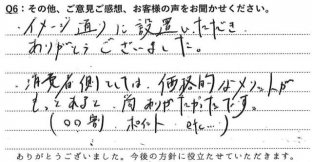 Q6：その他、ご意見ご感想、お客様の声をお聞かせください。
・イメージ通りに設置いただき
ありがとうございました。
・消費者側としては、価格的なメリットが
もっとあると、尚ありがたかったです。
(〇〇割 ポイント etc…)
ありがとうございました。今後の方針に役立たせていただきます。